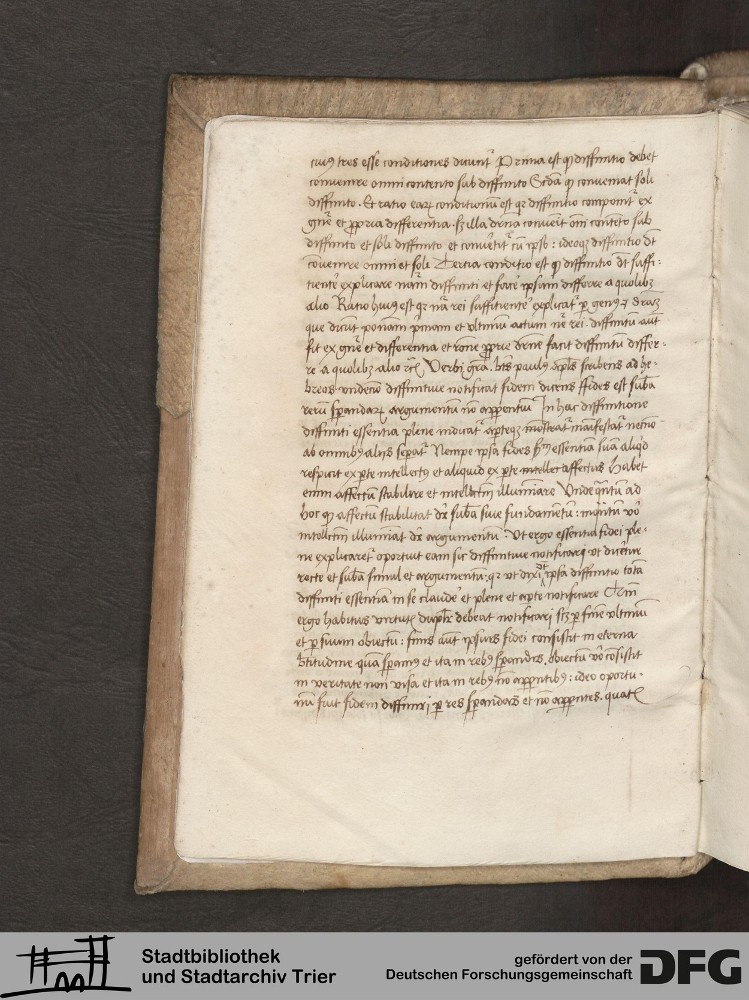 cui9 tres esse conditiones dicunt᷑ Prima est q̨ diffinitio debet
conuenire omni contento sub diffinito Scd̄a q̨ conueniat soli
diffinito . Et ratio eaꝝ conditionum est qꝛ diffinitio componit᷑ ex
gn̄e et ꝓpria differentia . sꝫ illa dr̄na conuēit om̄i contēto sub
diffinito et soli diffinito et conūtit᷑ cū ipso : ideoqꝫ diffinitio dꝫ
cōuenire omni et soli Tertia conditio est q̨ diffinitio dꝫ suffi:
tient᷑ explicare nām diffiniti et fac̄e ipsum differre a quolibꝫ
alio Ratio hui9 est qꝛ nā rei suffitient᷑ explicat᷑ ꝑ gen9 ⁊
que dicūt pͥmam et vltimū actum rei . diffinitū aūt
fit ex gn̄e et differentia et rōne ꝓprie dr̄ne facit diffinitū differ-
re a quolibꝫ alio Verbi grā . bt̄s paulus apl̄s scribens ad he-
breos diffinitiue notificat fidem dicens ffides est sub̄a
rerū sꝑandaꝝ argumentū nō apparentiū In hac diffinitione
diffiniti essentia plene indicat᷑ aꝑteqꝫ mōstrat᷑ manifestat᷑
ab omnibꝫ alijs seꝑat᷑ Nempe ipsa fides essentiā suā aliqd
respicit ex ꝑte intellect9 et aliquid ex ꝑte intellec affectus Habet
enim affectū stabilire et intellectū illuminare Vnde ad
hoc q̨ affectū stabilitat dr̄ sub̄a siue fundamentū : v̄o
intellectū illuminat dr̄ argumentū . Vt ergo essentia fidei ple-
ne explicaret᷑ oportuit eam sic diffinitiue notificari vt
recte et sub̄a simul et argumentū : qꝛ vt dixi ipsa diffinitio totā
diffiniti essentiā in se claud̄e et plene et aꝑte notificare
ergo habitus virtut᷑ dupl̄r debeat notificari sꝫ ꝑ finē vltimū
et ꝑ suum obiectū : finis aūt ipsius fidei consistit in eterna
btitudine quā sꝑam9 et ita in reb9 sꝑandis , obiectū v̄o cōsistit
in veritate non visa et ita in reb9 nō apꝑentib9 : ideo oportu-
nū fuit fidem diffiniri ꝑ res sꝑandas et nō apꝑentes .
Stadtbibliothek
und Stadtarchiv Trier
gefördert von der
Deutschen Forschungsgemeinschaft
DFG